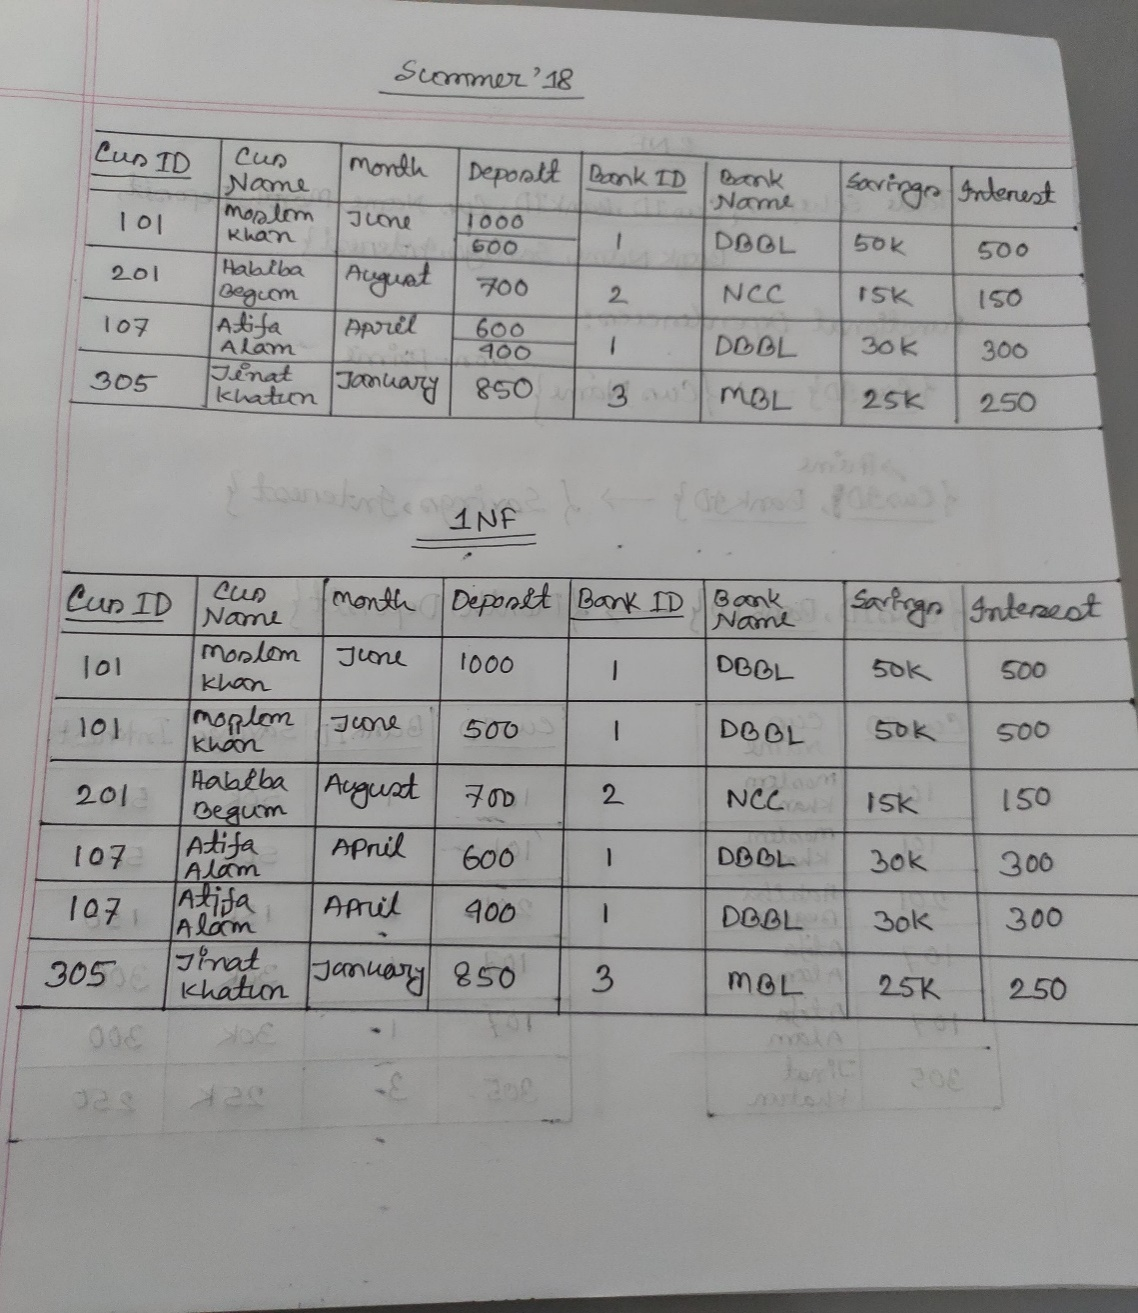 Summer '18
Cus ID Cus Name Month Deposit Bank ID Bank Name Savings Interest
101 Moslem Khan June 1000 500 1 DBBL 50K 500
201 Habiba Begum August 700 2 NCC 15K 150
107 Atifa Alam April 600 400 1 DBBL 30K 300
305 Jinat Khatun January 850 3 MBL 25K 250
1NF
Cus ID Cus Name Month Deposit Bank ID Bank Name Savings Interest
101 Moslem Khan June 1000 1 DBBL 50K 500
101 Moslem Khan June 500 1 DBBL 50K 500
201 Habiba Begum August 700 2 NCC 15K 150
107 Atifa Alam April 600 1 DBBL 30K 300
107 Atifa Alam April 400 1 DBBL 30K 300
305 Jinat Khatun January 850 3 MBL 25K 250